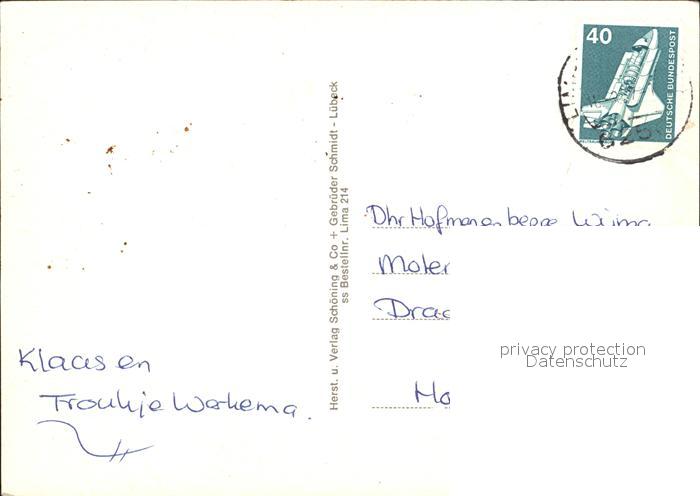 40
DEUTSCHE BUNDESPOST
625
Herst. u. Verlag Schöning & Co + Gebrüder Schmidt - Lübeck
ss Bestellnr. Lima 214
Dhr Hofman en
Moler
Drac
privacy protection
Datenschutz
Klaas en
Froukje Werkema.
Ho